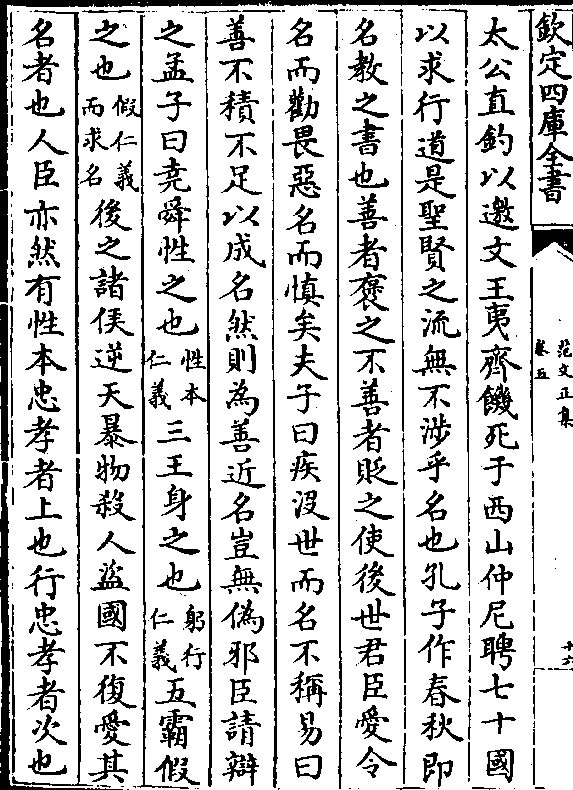 欽定四庫全書
范文正集
卷五
十六
太公直釣以邀文王夷齊饑死于西山仲尼聘七十國
以求行道是聖賢之流無不涉乎名也孔子作春秋即
名教之書也善者襃之不善者貶之使後世君臣愛令
名而勸畏惡名而慎矣夫子曰疾沒世而名不稱易曰
善不積不足以成名然則為善近名豈無偽邪臣請辯
之孟子曰堯舜性之也性本仁義三王身之也躬行仁義五霸假
之也假仁義而求名後之諸侯逆天暴物殺人盜國不復愛其
名者也人臣亦然有性本忠孝者上也行忠孝者次也